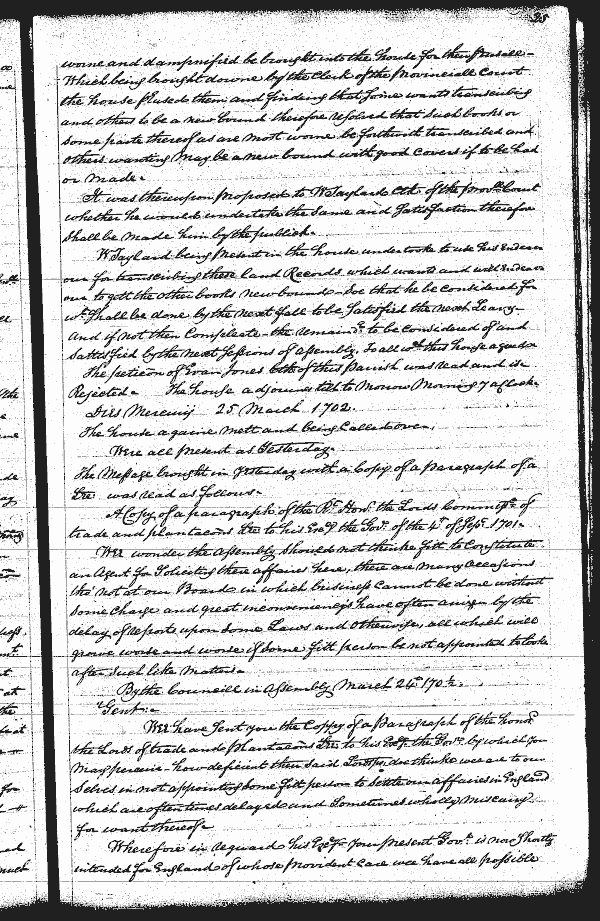 35
worne and dampnified be brought into the house for their peruseall
Which being brought downe by the Clerk of the Provinciall Court
the house peruseth them and finding that Some wants transcribing
and others to be a new bound therefore resolved that Such books or
Some parts thereof as are most worne be forthwith transcribed and
Others wanting May be a new bound with good Covers if to be had
or made.
It was thereupon proposed to W Taylard Clk of the Provll Court
whether he would undertake the Same and Satisfaction therefore
Shall be made him by the publick.
W Taylard being present in the house undertooke to use his Endeavour
for transcribing these land Records which wants and will Endeavour
to gett the other books new bound Soe that he be considered for
wt Shall be done by the next fall to be Satisfied the next Leavy
And if not then Compleate the remaindr to be considered of and
Sattisfied by the next Sessions of assembly, To all wch this house agreed
The peticon of Evan Jones of this Parish was read and is
Rejected. The house adjourns till to Morrow Morning 7 a Clock.
Dies Mercurij 25 March 1702.
The house againe mett and being Called over,
Were all present as Yesterday.
The Message brought in Yesterday with a Copy of a Paragraph of a
Lre was read as follows.
A Copy of a paragraph of the Rt Honble the Lords Commissrs of
trade and plantacons Lre to his Excy the Govr of the 4th of Sepr 1701.
Wee wonder the Assembly Should not thinke fitt to Constitute
an Agent for Soliciting there affaires here, there are many occasions
tho' not at our Board in which buisiness Cannot be done without
Some Charge and great inconveniencys have often arisen by the
delay of reports upon Some Laws and otherwise, all which will
growe worse and worse if Some fitt person be not appointed to looke
after such like Matters.
By the Councill in Assembly March 24th 170½.
Gent:
Wee have Sent you the Coppy of a Paragraph of the honoble
the Lords of trade and Plantacons Lre to his Excy the Govr by which you
May perceive how deficient their said Lordpps doe thinke wee are to our
Selves in not appointing Some fitt person to Settle our affaires in England
which are oftentimes delayed and Sometimes wholly Miscarry
for want thereof.
Wherefore in regard his Excy Your present Govr is now Shortly
intended for England of whose Provident Care wee have all possible